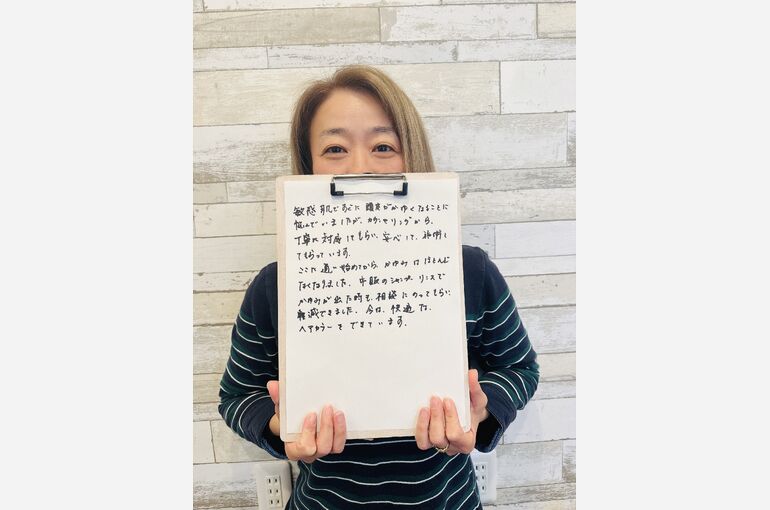 敏感肌ですぐに頭皮がかゆくなることに
悩んでいましたが、カウンセリングから、
丁寧に対応してもらい、安心して、利用し
てもらっています。
ここに通い始めてから、かゆみはほとんど
なくなりました。市販のシャンプー、リンスで
かゆみが出た時も、相談にのってもらい
軽減できました。今は、快適な、
ヘアカラーをできています。